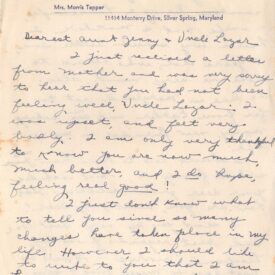 Mrs. Morris Tepper
11414 Monterry Drive, Silver Spring, Maryland
Dearest Aunt Jenny & Uncle Lazar
I just recieved a letter
from mother and was very sorry
to hear that you had not been
feeling well, Uncle Lazar. I
was upset, and felt very
badly. I am only very thankful
to know you are now much,
much better, and I do hope
feeling real good!
I just don't know what
to tell you since so many
changes have taken place in my
life. However, I should like
to write to you that I am